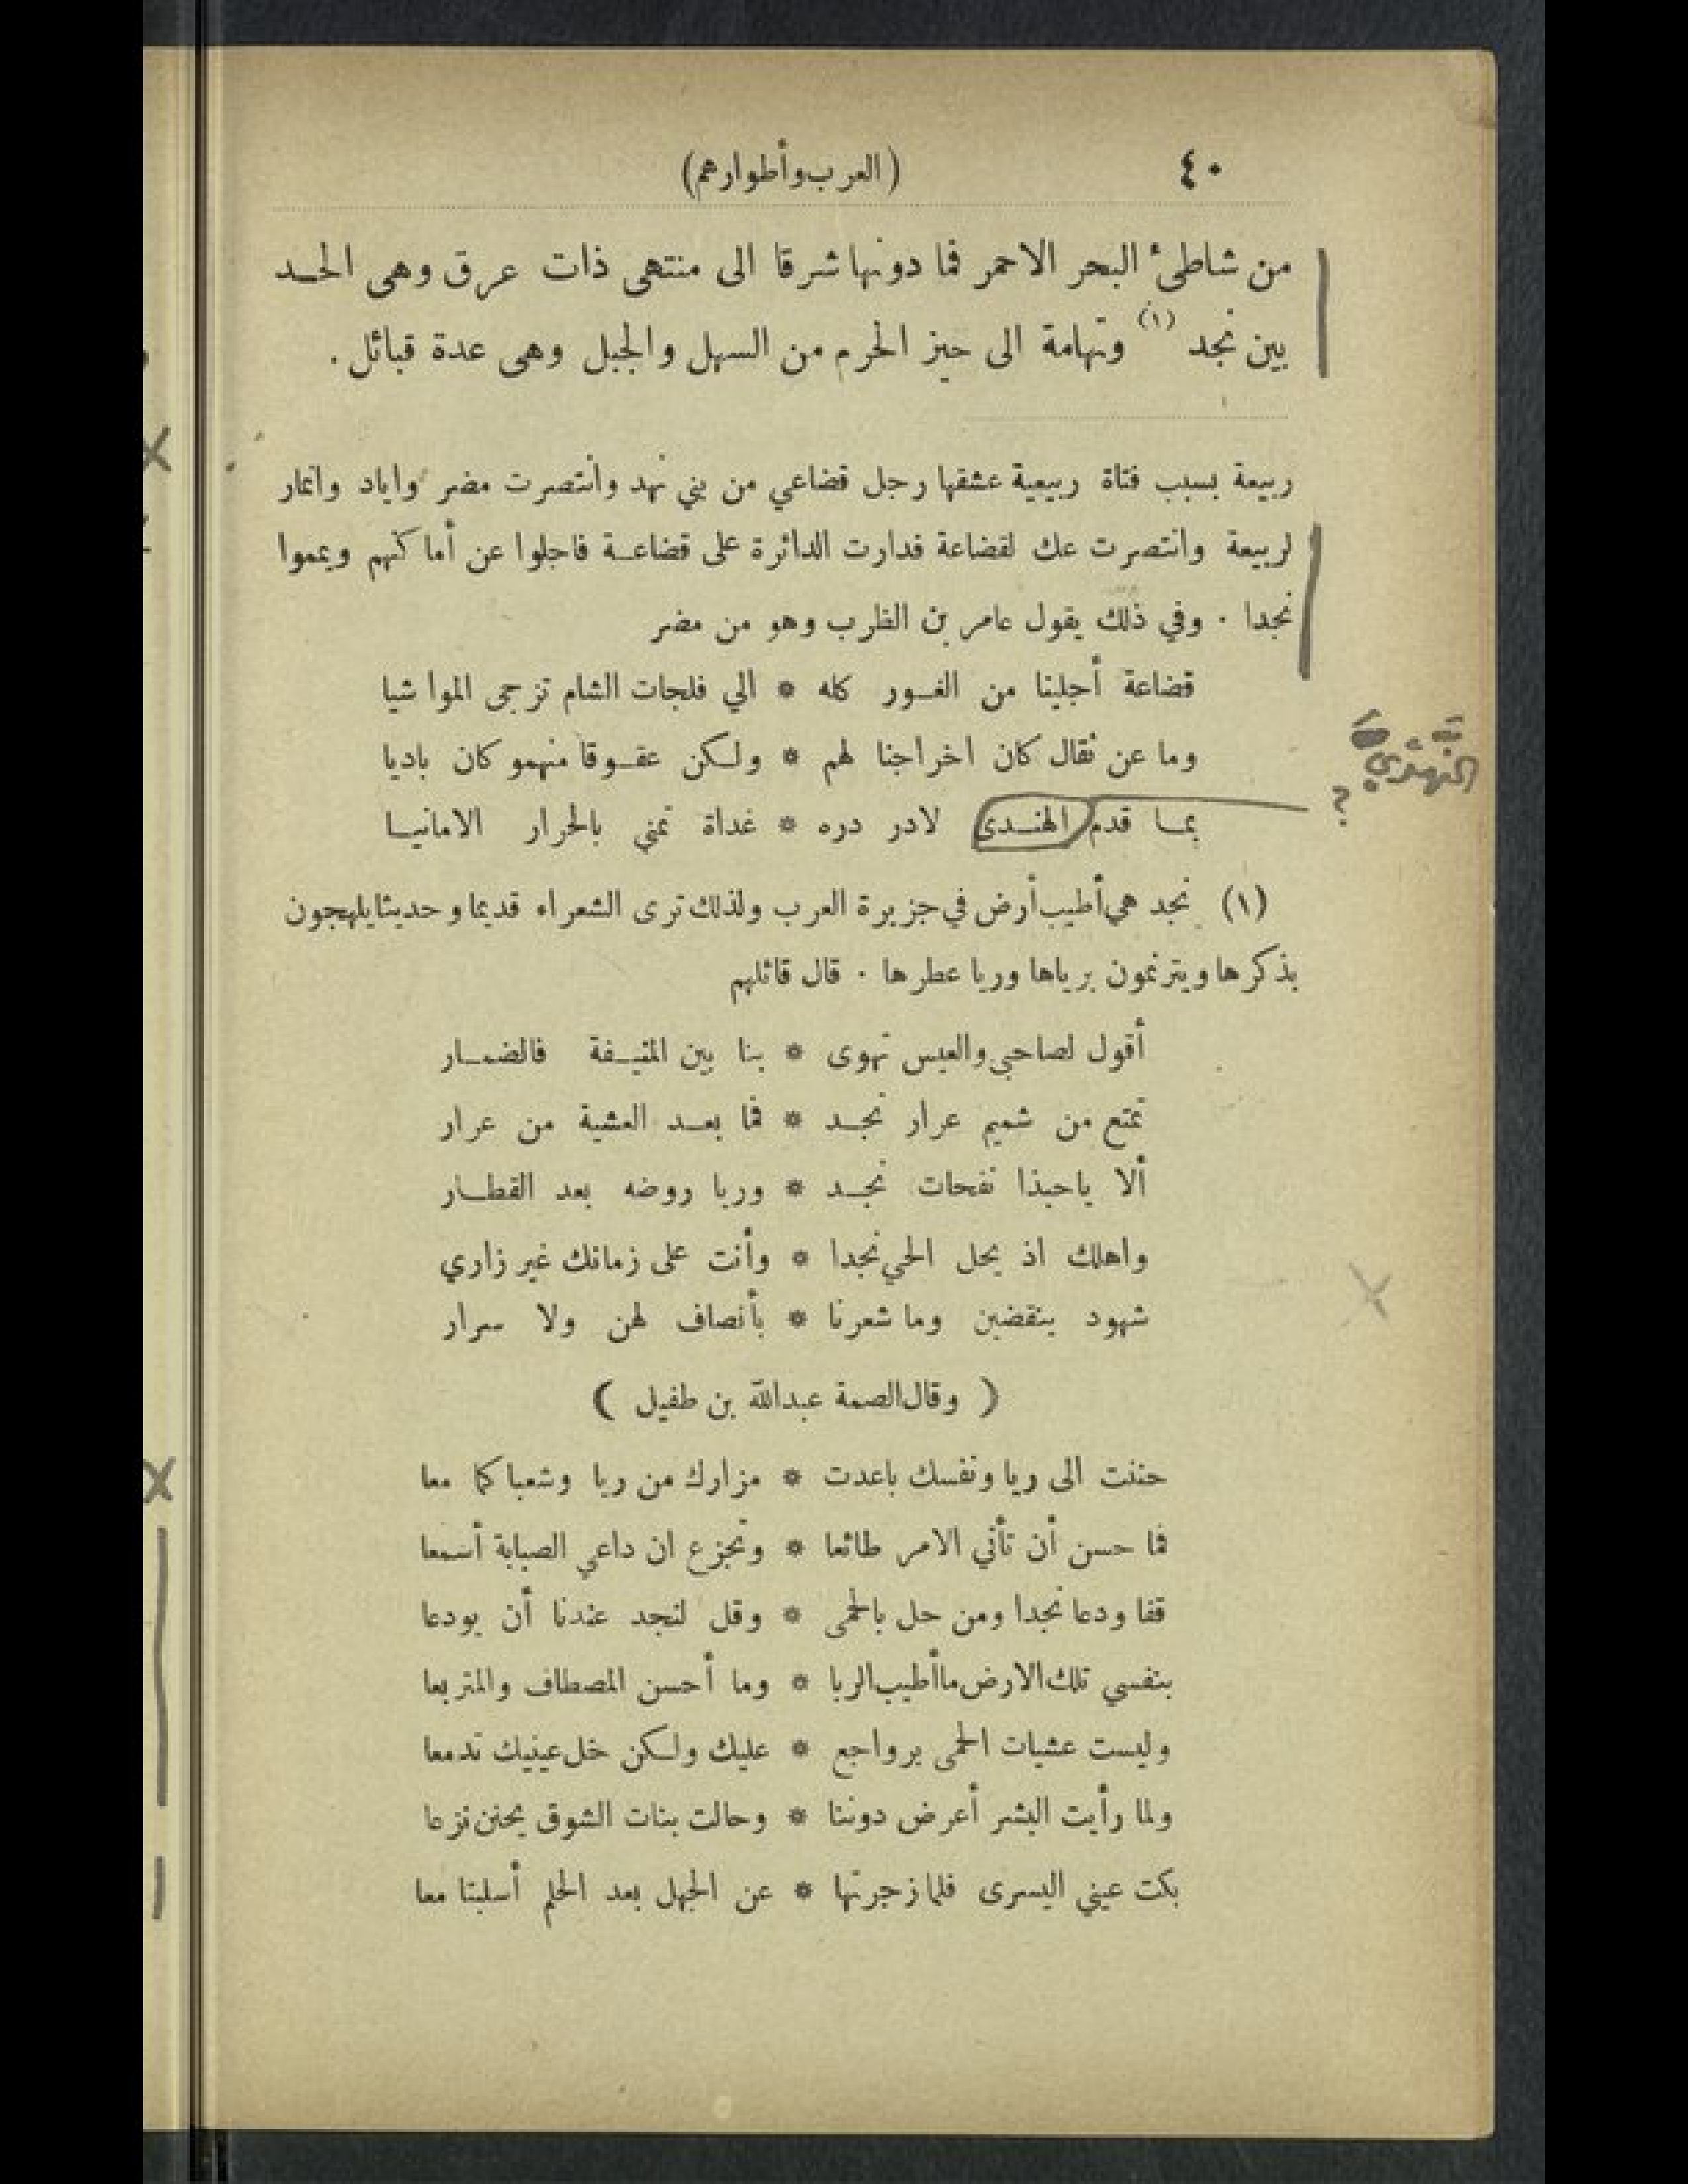 ٤٠
(العرب وأطوارهم)
من شاطئ البحر الاحمر فما دونها شرقا الى منتهى ذات عرق وهى الحد
بين نجد (١) وتهامة الى حيز الحرم من السهل والجبل وهى عدة قبائل .
ربيعة بسبب فتاة ربيعية عشقها رجل قضاعي من بني نهد وانتصرت مضر واياد وانمار
لربيعة وانتصرت عك لقضاعة فدارت الدائرة على قضاعة فاجلوا عن أماكنهم ويمموا
نجدا . وفي ذلك يقول عامر بن الظرب وهو من مضر
قضاعة أجلينا من الغور كله * الي فلجات الشام تزجى المواشيا
وما عن ثقال كان اخراجنا لهم * ولكن عقوقا منهمو كان باديا
بما قدم الهندى لادر دره * غداة تمنى بالحرار الامانيا
النَّهْدِيُّ ؟
(١) نجد هي أطيب أرض في جزيرة العرب ولذلك ترى الشعراء قديما وحديثا يلهجون
بذكرها ويترنمون برياها وريا عطرها . قال قائلهم
أقول لصاحبي والعيس تهوى * بنا بين المنيفة فالضمار
تمتع من شميم عرار نجد * فما بعد العشية من عرار
ألا ياحبذا نفحات نجد * وريا روضه بعد القطار
واهلك اذ يحل الحي نجدا * وأنت على زمانك غير زاري
شهود ينقضين وما شعرنا * بأنصاف لهن ولا سرار
( وقال الصمة عبدالله بن طفيل )
حننت الى ريا ونفسك باعدت * مزارك من ريا وشعباكما معا
فما حسن أن تأتي الامر طائعا * وتجزع ان داعي الصبابة أسمعا
قفا ودعا نجدا ومن حل بالحمى * وقل لنجد عندنا أن يودعا
بنفسي تلك الارض ماأطيب الربا * وما أحسن المصطاف والمتربعا
وليست عشيات الحمى برواجع * عليك ولكن خل عينيك تدمعا
ولما رأيت البشر أعرض دوننا * وحالت بنات الشوق يحنن نزعا
بكت عيني اليسرى فلما زجرتها * عن الجهل بعد الحلم أسلبتا معا